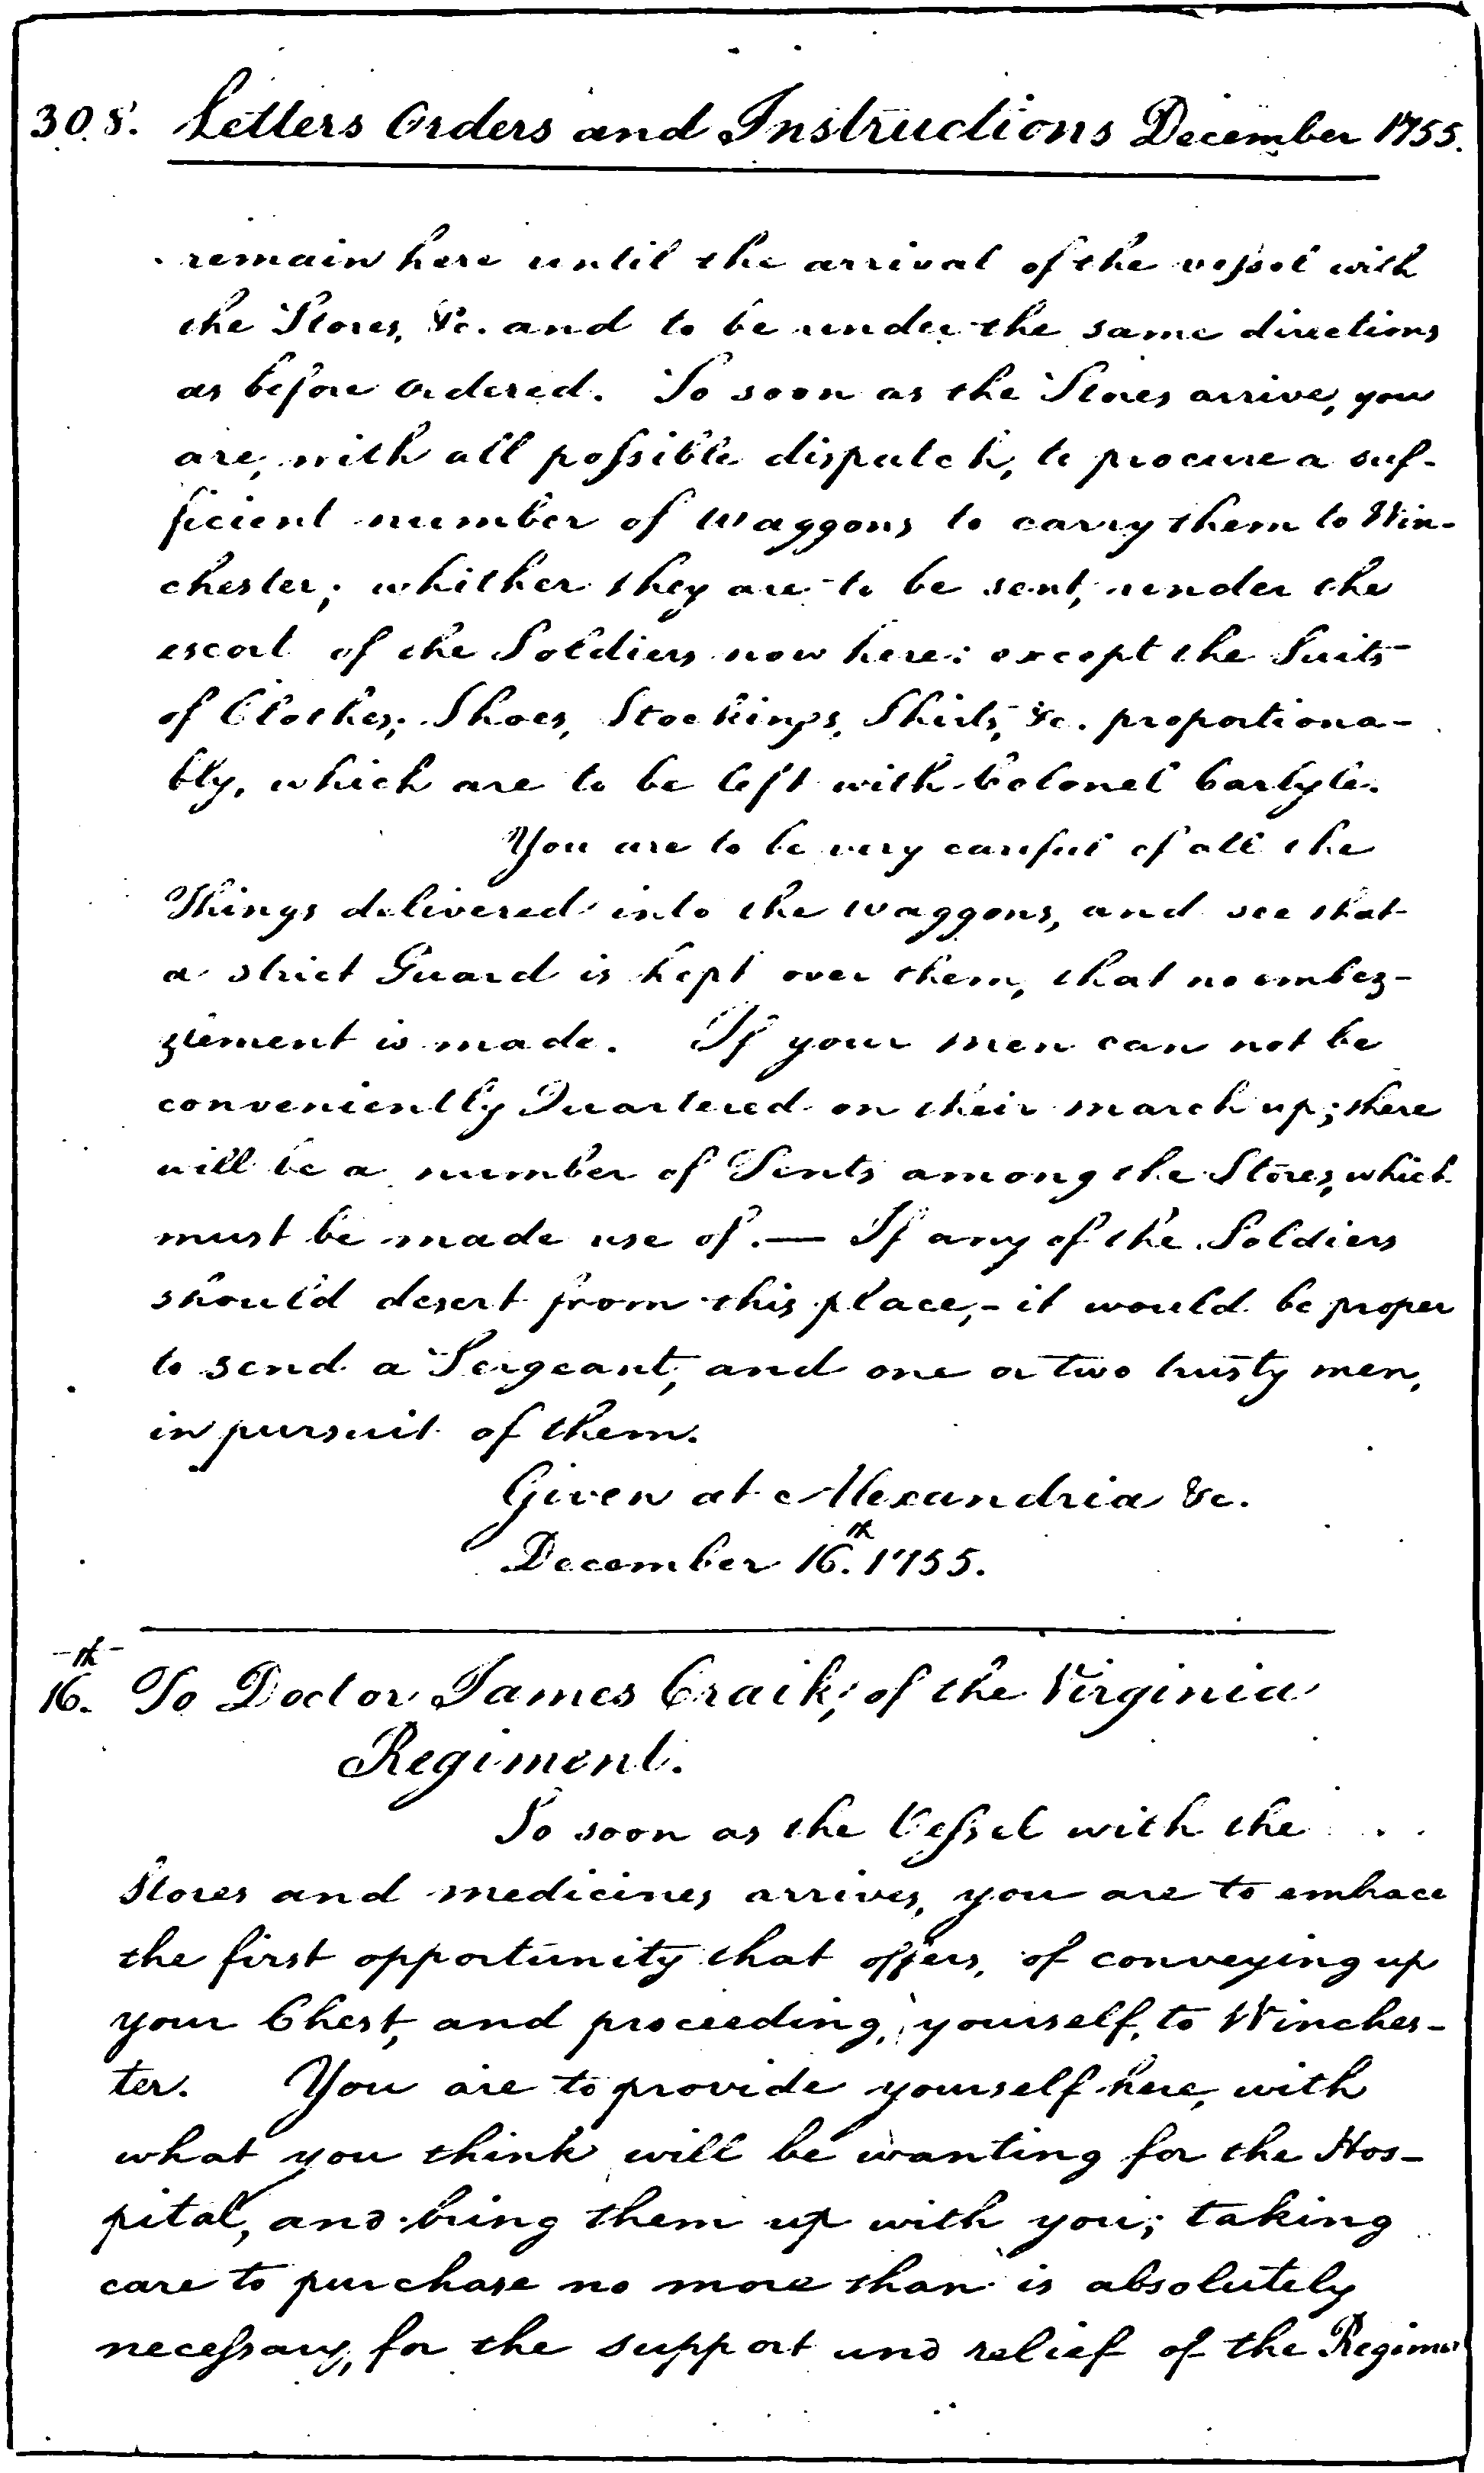 308. Letters Orders and Instructions December 1755.
remain here until the arrival of the vessel with
the Stores, &c. and to be under the same directions
as before ordered. So soon as the Stores arrive, you
are, with all possible dispatch, to procure a suf-
ficient number of Waggons to carry them to Win-
chester; whither they are to be sent, under the
escort of the Soldiers now here: except the Suits
of Clothes, Shoes, Stockings, Shirts, &c. proportiona-
bly, which are to be left with Colonel Carlyle.
You are to be very careful of all the
Things delivered into the waggons, and see that
a strict Guard is kept over them, that no embez-
zlement is made. If your men can not be
conveniently Quartered on their march up; there
will be a number of Tents among the Stores, which
must be made use of.— If any of the Soldiers
should desert from this place,- it would be proper
to send a Sergeant, and one or two trusty men,
in pursuit of them.
Given at Alexandria &c.
December 16.th 1755.
16.th To Doctor James Craik; of the Virginia
Regiment.
So soon as the Vessel with the
Stores and medicines arrives, you are to embrace
the first opportunity that offers, of conveying up
your Chest, and proceeding, yourself, to Winches-
ter. You are to provide yourself here, with
what you think will be wanting for the Hos-
pital, and bring them up with you; taking
care to purchase no more than is absolutely
necessary, for the support and relief of the Regimen